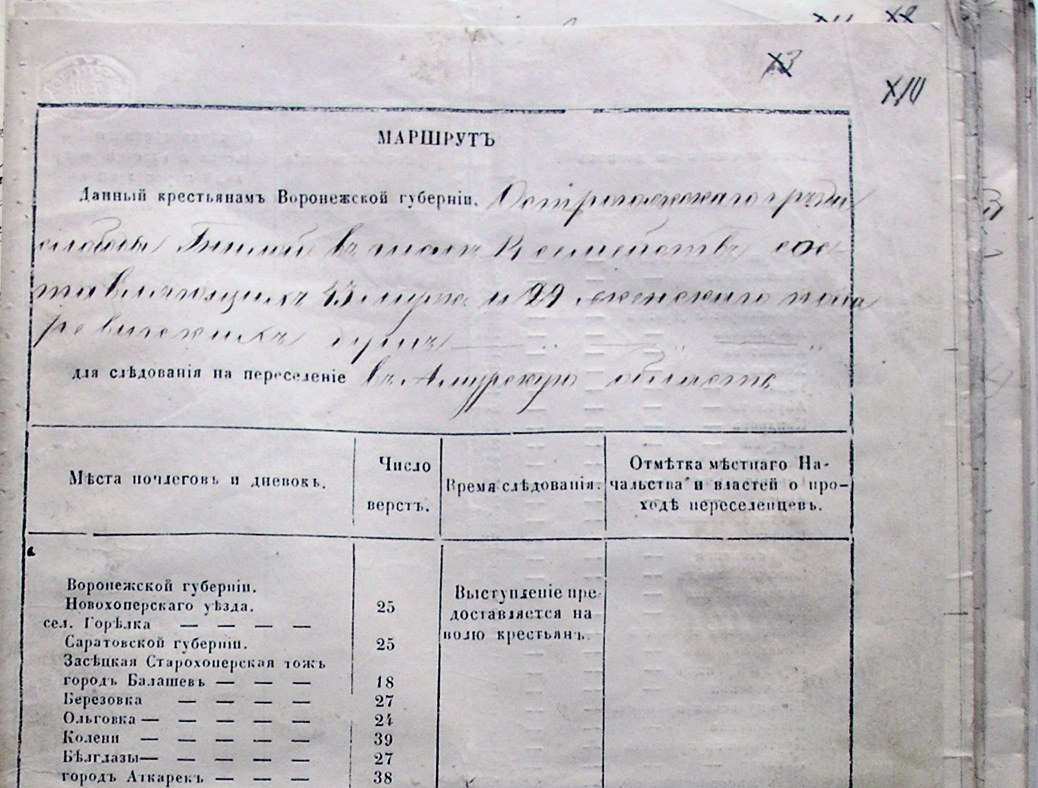 МАРШРУТЪ
Данный крестьянамъ Воронежской губерніи, Острогожскаго уѣзда
слободы Гнилой въ числѣ семействъ сос-
тавляющихъ 43 мужска и 29 женскаго пола
ревизскихъ душъ
для слѣдованія на переселеніе въ Амурскую область
Мѣста ночлеговъ и дневокъ.
Число верстъ.
Время слѣдованія.
Отмѣтка мѣстнаго На-
чальства и властей о про-
ходѣ переселенцевъ.
Воронежской губерніи.
Новохоперскаго уѣзда. 25
сел. Горѣлка — — — —
Саратовской губерніи. 25
Засѣцкая Старохоперская тожъ
городъ Балашевъ — — — 18
Березовка — — — — 27
Ольговка — — — — — 24
Колени — — — — — 39
Бѣлглазы — — — — — 27
городъ Аткарскъ — — — 38
Выступленіе пре-
доставляется на
волю крестьянъ.